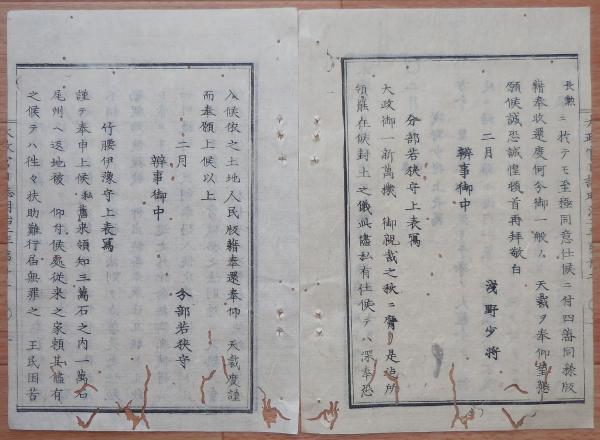 長勲ニ於テモ至極同意仕候ニ付四藩同様版
籍奉収還度何分御一般ノ 天裁ヲ奉仰望懇
願候誠恐誠惶頓首再拝敬白
二月 浅野少将
辨事御中
分部若狭守上表写
大政御一新萬機 御親裁之秋ニ膺リ是迄所
領罷在候封土之儀其儘私有仕候テハ深奉恐
入候依之土地人民版籍奉還奉仰 天裁度謹
而奉願上候以上
二月 分部若狭守
辨事御中
竹腰伊豫守上表写
謹テ奉申上候私舊来領知三萬石之内一萬石
尾州ヘ返地被 仰付候處従来之家頼其儘有
之候テハ往々扶助難行届無罪之 王民困苦